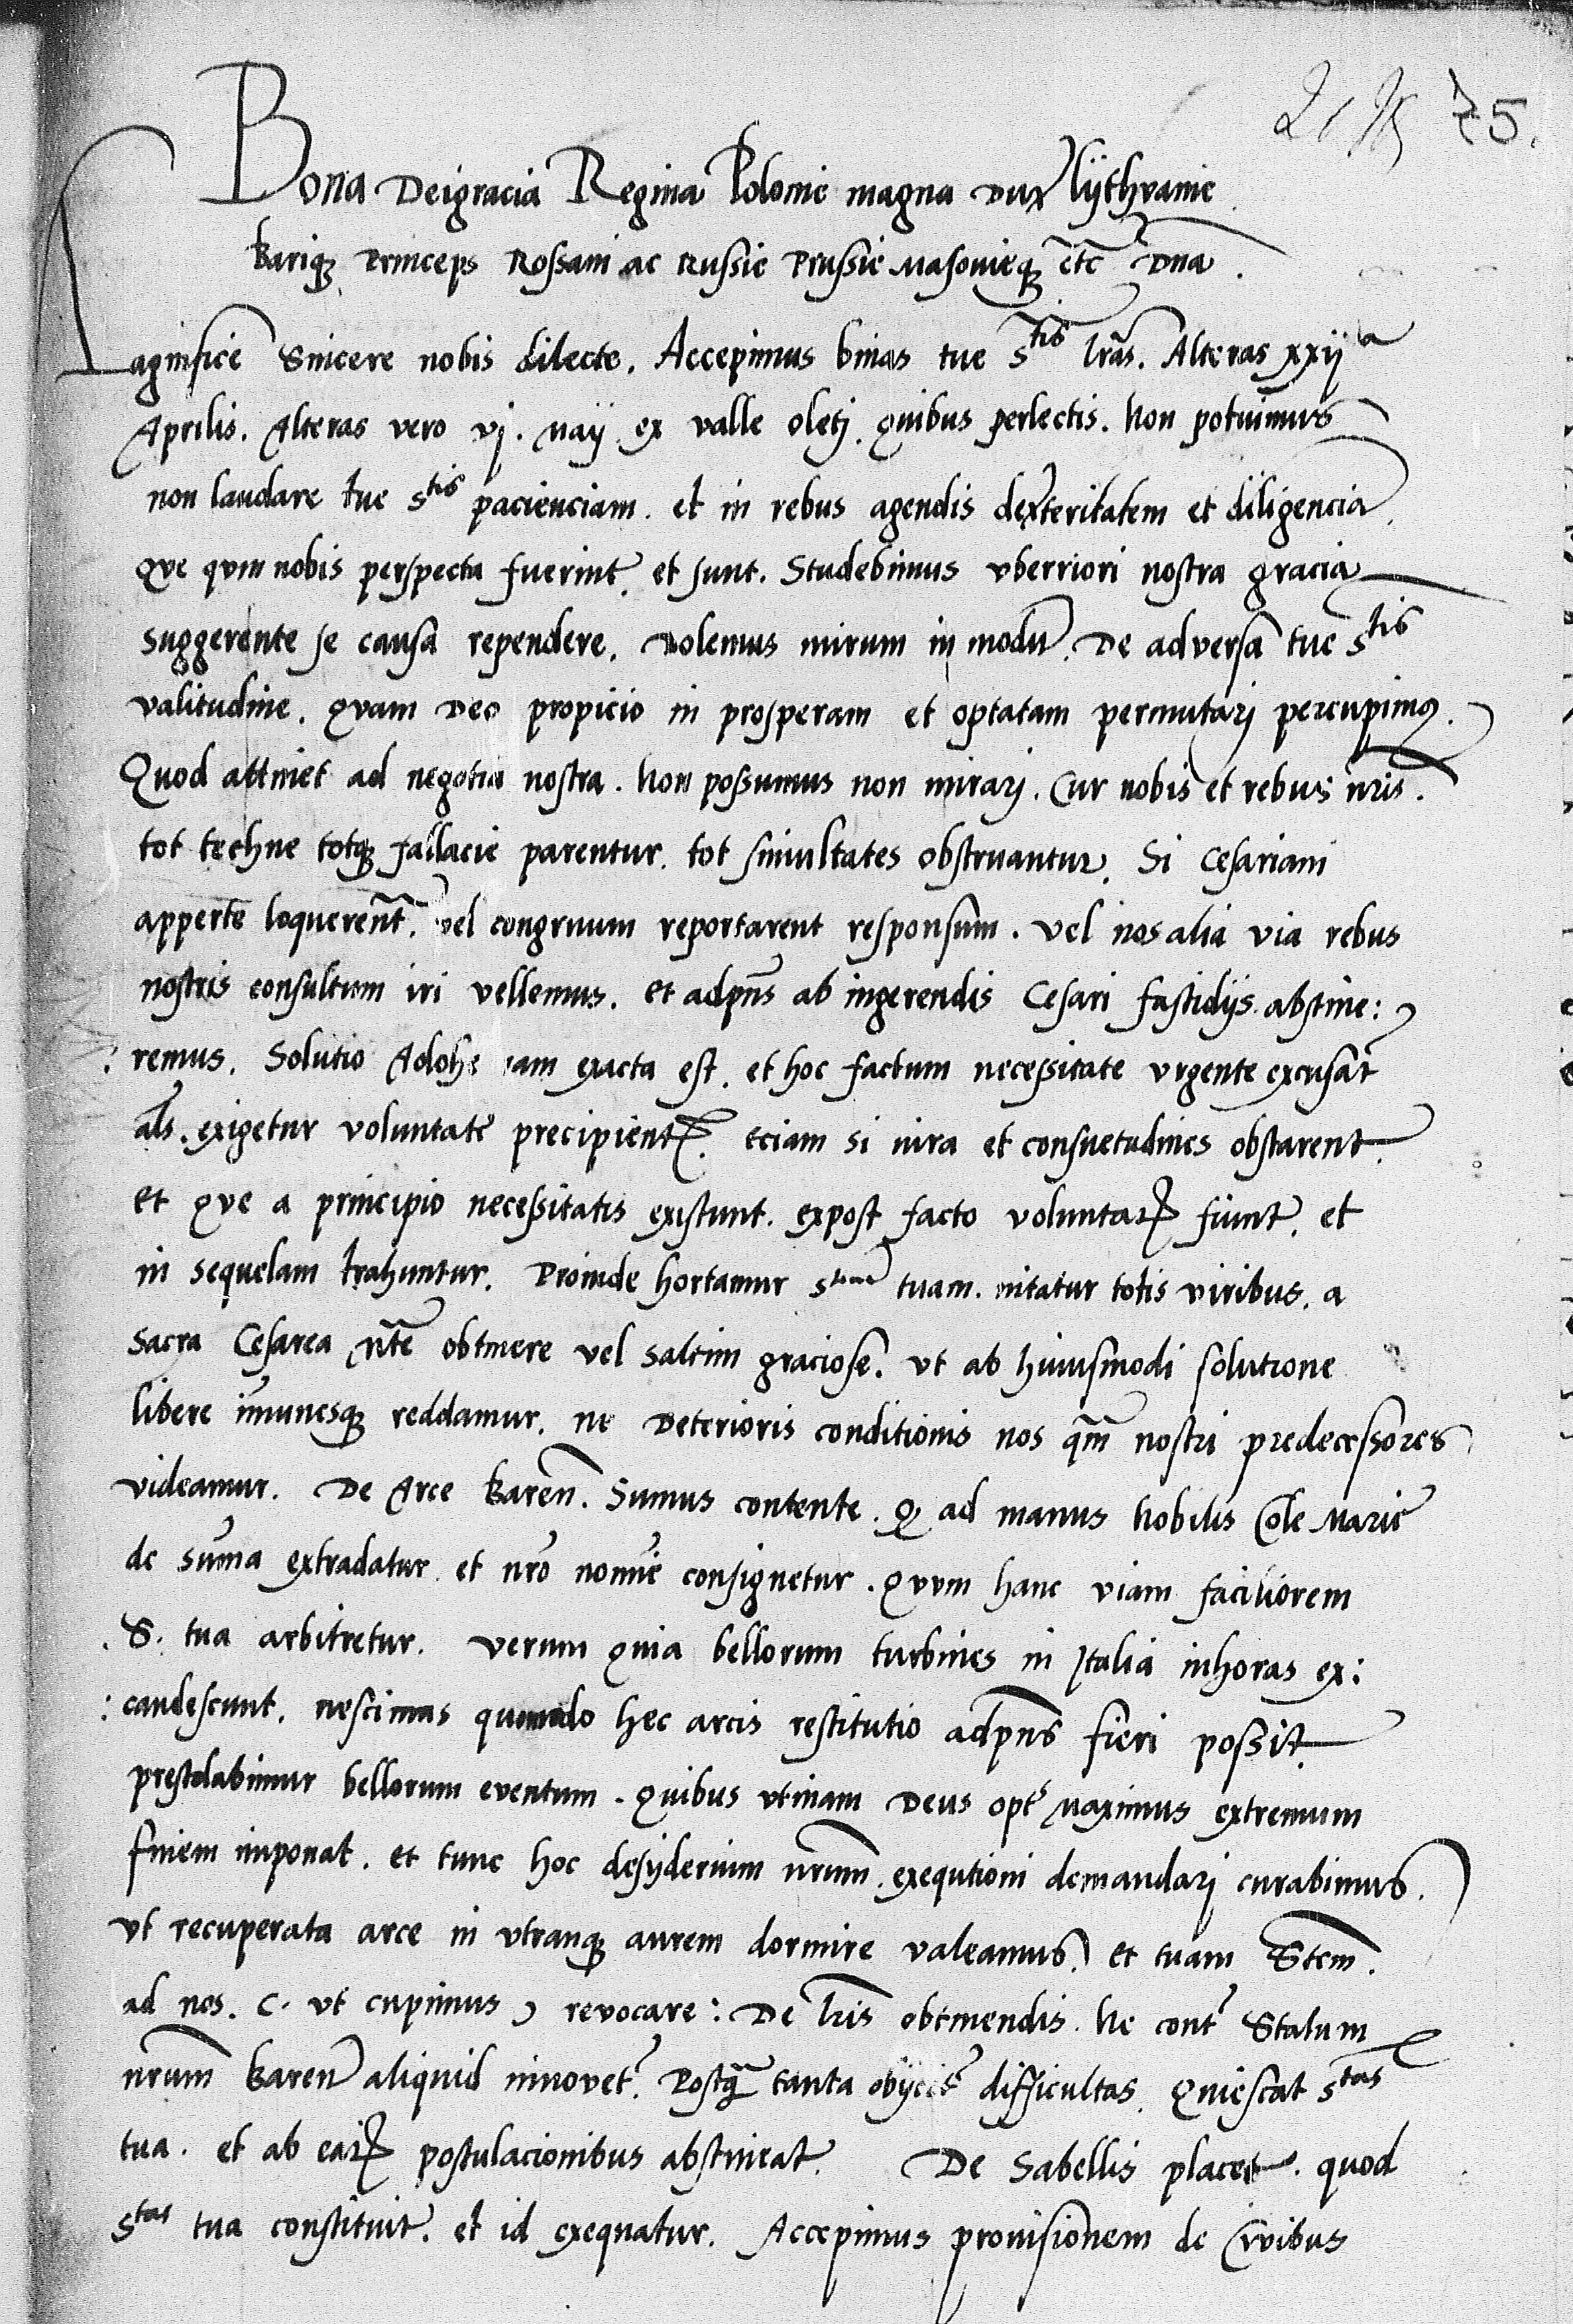 75.
Bona Deigracia Regina Polonie magna Dux lijthvanie
Bariq3 Princeps Rossani ac Russie Prussie Masovieq3 etc̄ Dn̄a.
Magnifice Sincere nobis dilecte. Accepimus binas tue S^tis lr̄as. Alteras xxij^a
Aprilis. Alteras vero vj. Maij ex valle oletj. Quibus perlectis. Non potuimus
non laudare tue S^tis pacienciam. et in rebus agendis dexteritatem et diligenciā.
Que qum nobis perspecta fuerint, et sunt. Studebimus vberriori nostra gracia
suggerente se causa rependere. Dolemus mirum in modū. De adversa tue S^tis
valitudine. Quam Deo propicio in prosperam et optatam permutarj percupimus.
Quod attinet ad negotia nostra. Non possumus non mirarj. Cur nobis et rebus nr̄is.
tot techne totq3 fallacie parentur. tot simultates obstruantur. Si Cesariani
apperte loquerent̄. vel congruum reportarent responsum. vel nos alia via rebus
nostris consultum iri vellemus. et adpn̄s ab ingerendis Cesari fastidijs abstine:
:remus. Solutio Adohe iam exacta est. et hoc factum necessitate vrgente excusat̄
al̄s. exigetur voluntate precipient. eciam si iura et consuetudines obstarent.
et que a principio necessitatis existunt. expost facto voluntar fiunt. et
in sequelam trahuntur. Proinde hortamur S^tem tuam. nitatur totis viribus. a
Sacra Cesarea Mt̄e obtinere vel saltim graciose. vt ab huiusmodi solutione
libere im̄unesq3 reddamur. ne Deterioris conditionis nos qm̄ nostri predecessores
videamur. De Arce Baren̄. Sumus contente. Q ad manus Nobilis Cole Marie
de Sum̄a extradatur. et nr̄o nomīe consignetur. Quum hanc viam faciliorem
S. tua arbitretur. Verum quia bellorum turbines in Italia inhoras ex:
:candescunt. nescimus quomodo hec arcis restitutio adpn̄s fieri possit.
prestolabimur bellorum eventum. Quibus vtinam Deus opt^s Maximus extremum
finem imponat. et tunc hoc desyderium nr̄um. exequtioni demandarj curabimus.
vt recuperata arce in vtranq3 aurem dormire valeamus. et tuam S̄tem.
ad nos. (. vt cupimus ) revocare: De lr̄is obtinendis. Ne cont^r Statum
nr̄um Baren̄ aliquid innovet^r. Postq̄ tanta obijcit^r difficultas. Quiescat S^tas
tua. et ab ear postulacionibus abstineat. De Sabellis placet. quod
S^tas tua constituit. et id exequatur. Accepimus provisionem de Civibus